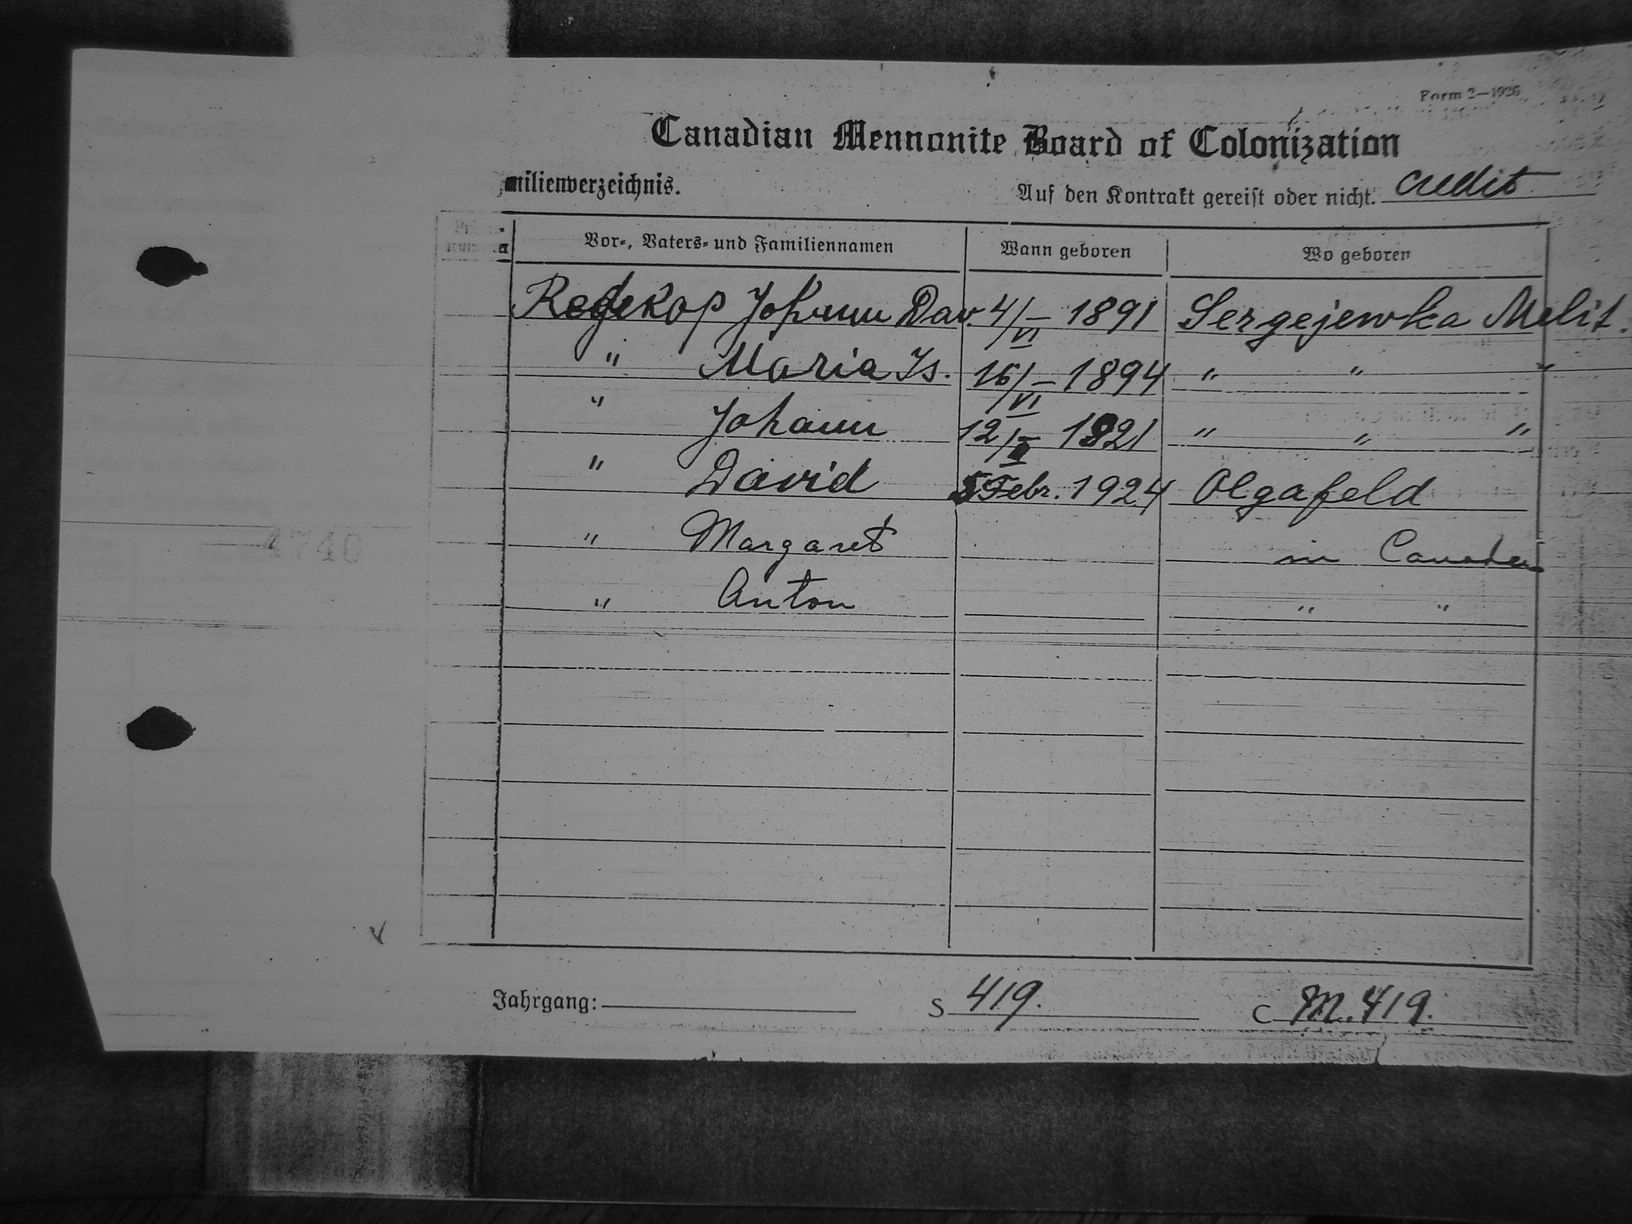 Form 2—1926
Canadian Mennonite Board of Colonization
milienverzeichnis.
Auf den Kontrakt gereist oder nicht. credit
Vor-, Vaters- und Familiennamen Wann geboren Wo geboren
Redekop Johann Dav. 4/VI – 1891 Sergejewka Melit.
" Maria Is. 16/VI – 1894 " " "
" Johann 12/ – 1921 " " "
" David 5 Febr. 1924 Olgafeld
" Margaret in Canada
4740
" Anton " "
Jahrgang: S 419. C M.419.